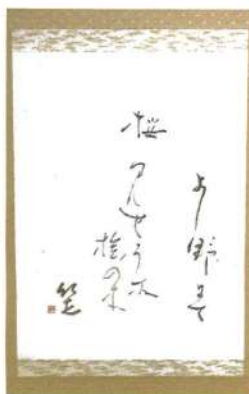 よし野にて
桜見せうそ
檜の木
笠